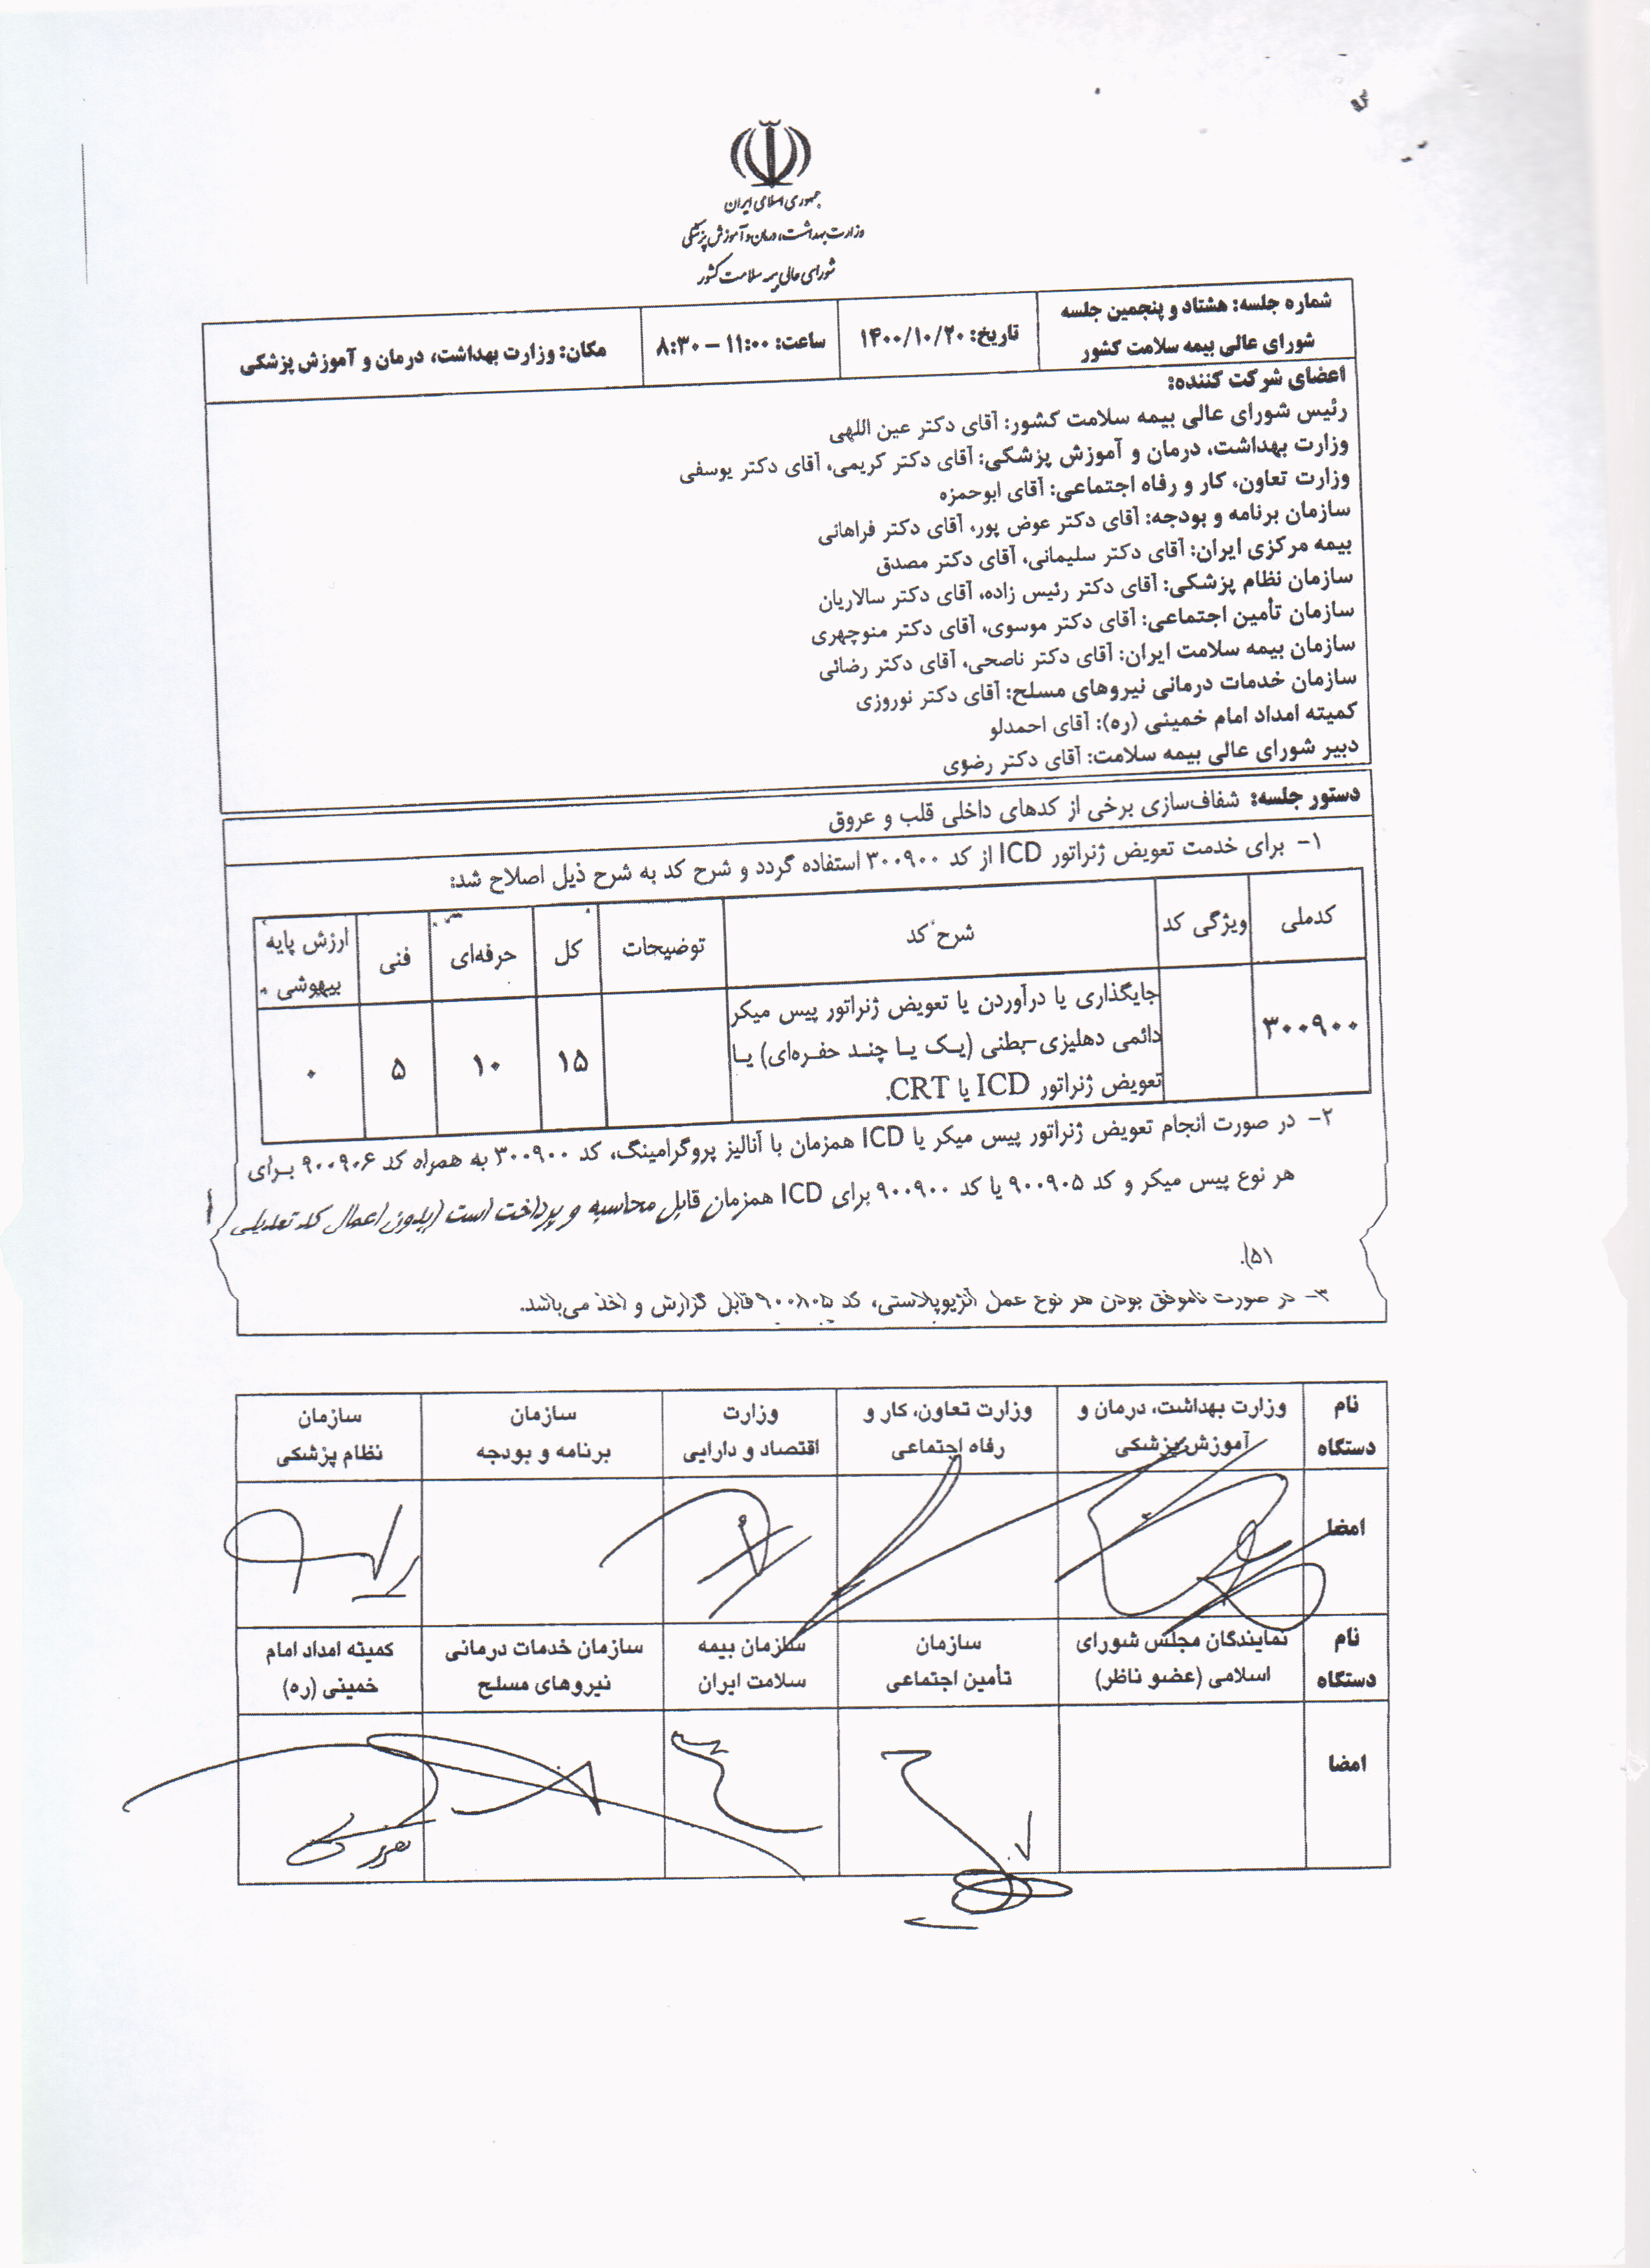 جمهوری اسلامی ایران
وزارت بهداشت، درمان و آموزش پزشکی
شورای عالی بیمه سلامت کشور
شماره جلسه: هشتاد و پنجمین جلسه
شورای عالی بیمه سلامت کشور
تاریخ: ۱۴۰۰/۱۰/۲۰
ساعت: ۱۱:۰۰ – ۸:۳۰
مکان: وزارت بهداشت، درمان و آموزش پزشکی
اعضای شرکت کننده:
رئیس شورای عالی بیمه سلامت کشور: آقای دکتر عین اللهی
وزارت بهداشت، درمان و آموزش پزشکی: آقای دکتر کریمی، آقای دکتر یوسفی
وزارت تعاون، کار و رفاه اجتماعی: آقای ابوحمزه
سازمان برنامه و بودجه: آقای دکتر عوض پور، آقای دکتر فراهانی
بیمه مرکزی ایران: آقای دکتر سلیمانی، آقای دکتر مصدق
سازمان نظام پزشکی: آقای دکتر رئیس زاده، آقای دکتر سالاریان
سازمان تأمین اجتماعی: آقای دکتر موسوی، آقای دکتر منوچهری
سازمان بیمه سلامت ایران: آقای دکتر ناصحی، آقای دکتر رضائی
سازمان خدمات درمانی نیروهای مسلح: آقای دکتر نوروزی
کمیته امداد امام خمینی (ره): آقای احمدلو
دبیر شورای عالی بیمه سلامت: آقای دکتر رضوی
دستور جلسه: شفاف‌سازی برخی از کدهای داخلی قلب و عروق
۱- برای خدمت تعویض ژنراتور ICD از کد ۳۰۰۹۰۰ استفاده گردد و شرح کد به شرح ذیل اصلاح شد:
کدملی
ویژگی کد
شرح کد
توضیحات
کل
حرفه‌ای
فنی
ارزش پایه
بیهوشی
۳۰۰۹۰۰
جایگذاری یا درآوردن یا تعویض ژنراتور پیس میکر
دائمی دهلیزی-بطنی (یک یا چند حفره‌ای) یا
تعویض ژنراتور ICD یا CRT.
۱۵
۱۰
۵
۰
۲- در صورت انجام تعویض ژنراتور پیس میکر یا ICD همزمان با آنالیز پروگرامینگ، کد ۳۰۰۹۰۰ به همراه کد ۹۰۰۹۰۶ برای
هر نوع پیس میکر و کد ۹۰۰۹۰۵ یا کد ۹۰۰۹۰۰ برای ICD همزمان قابل محاسبه و پرداخت است (بدون اعمال کد تعدیلی
۵۱).
۳- در صورت ناموفق بودن هر نوع عمل آنژیوپلاستی، کد ۹۰۰۸۰۵ قابل گزارش و اخذ می‌باشد.
نام
دستگاه
وزارت بهداشت، درمان و
آموزش پزشکی
وزارت تعاون، کار و
رفاه اجتماعی
وزارت
اقتصاد و دارایی
سازمان
برنامه و بودجه
سازمان
نظام پزشکی
امضا
نام
دستگاه
نمایندگان مجلس شورای
اسلامی (عضو ناظر)
سازمان
تأمین اجتماعی
سازمان بیمه
سلامت ایران
سازمان خدمات درمانی
نیروهای مسلح
کمیته امداد امام
خمینی (ره)
امضا